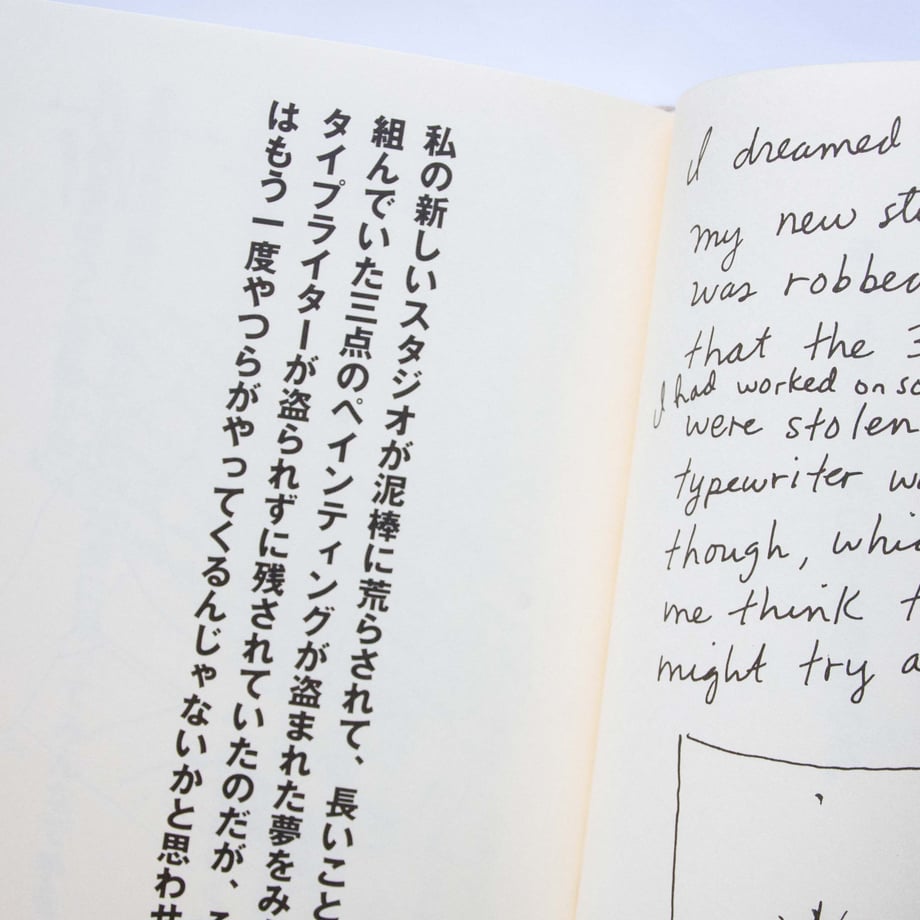 私の新しいスタジオが泥棒に荒らされて、長いこと
組んでいた三点のペインティングが盗まれた夢をみ
タイプライターが盗られずに残されていたのだが、
はもう一度やつらがやってくるんじゃないかと思わせ
I dreamed
my new
was robbed
that the 3
I had worked on
were stolen
typewriter
though,
me think
might try